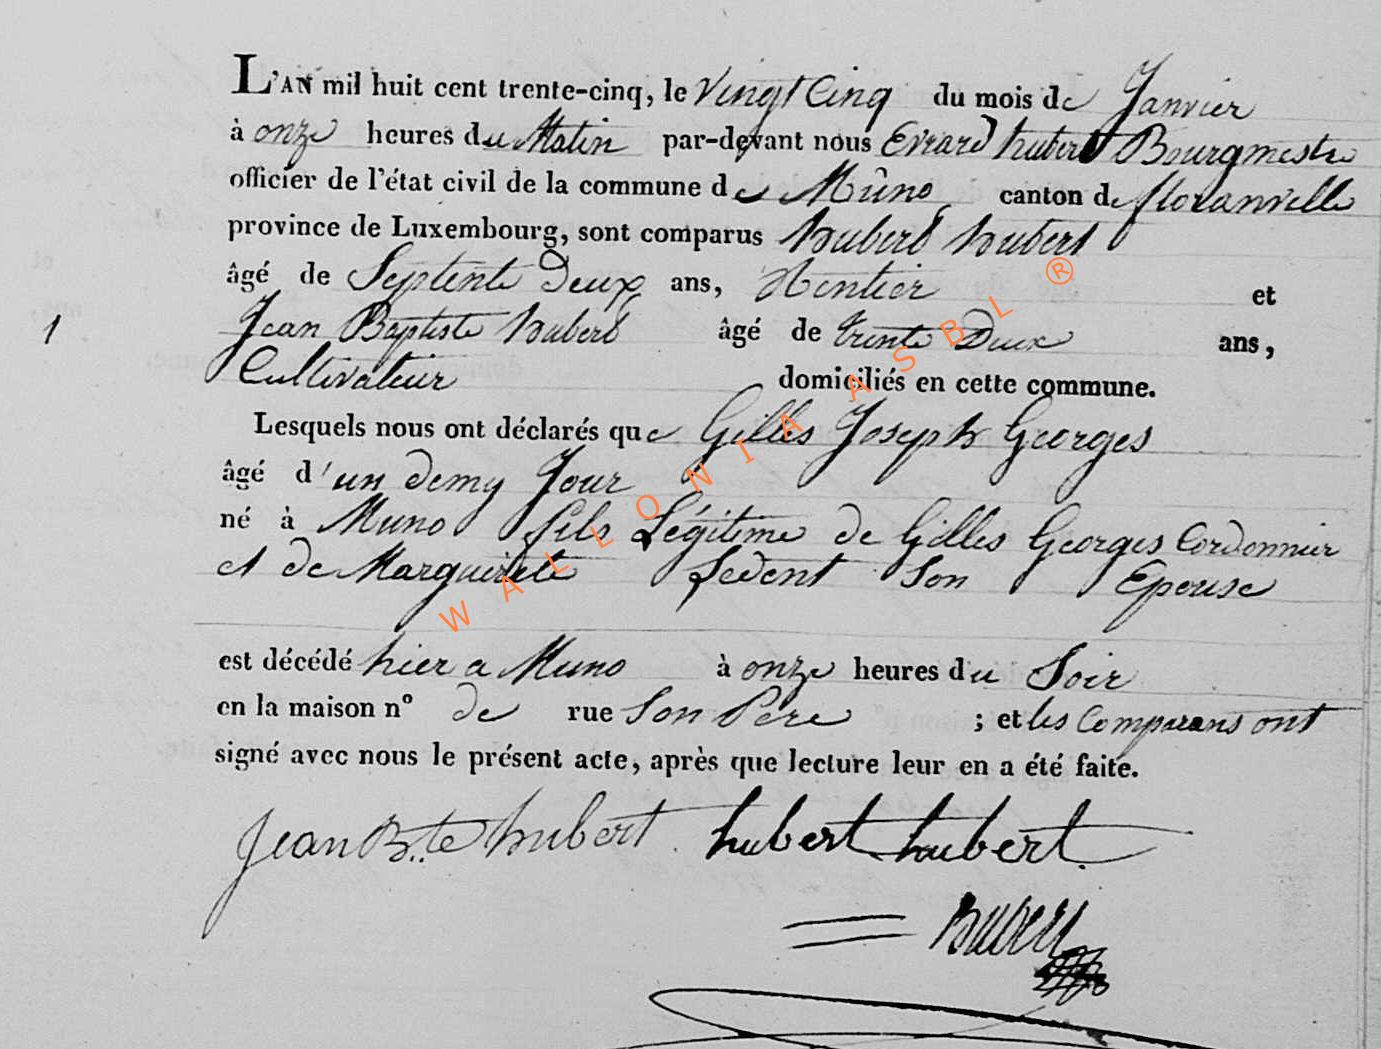 L'AN mil huit cent trente-cinq, le Vingt Cinq du mois de Janvier
à onze heures du Matin par-devant nous Evrard hubert Bourgmestre
officier de l'état civil de la commune de Mûno canton de floranville
province de Luxembourg, sont comparus hubert hubert
âgé de Septente Deux ans, Rentier et
1 Jean Baptiste hubert âgé de trente Deux ans,
Cultivateur domiciliés en cette commune.
Lesquels nous ont déclarés que Gilles Joseph Georges
âgé d'un demy Jour
né à Muno fils Légitime de Gilles Georges Cordonnier
et de Marguerite Ledent Son Epouse
est décédé hier a Muno à onze heures du Soir
en la maison n° de rue Son Pere ; et les Comparans ont
signé avec nous le présent acte, après que lecture leur en a été faite.
Jean Bte hubert hubert hubert
WALLONIA ASBL ®